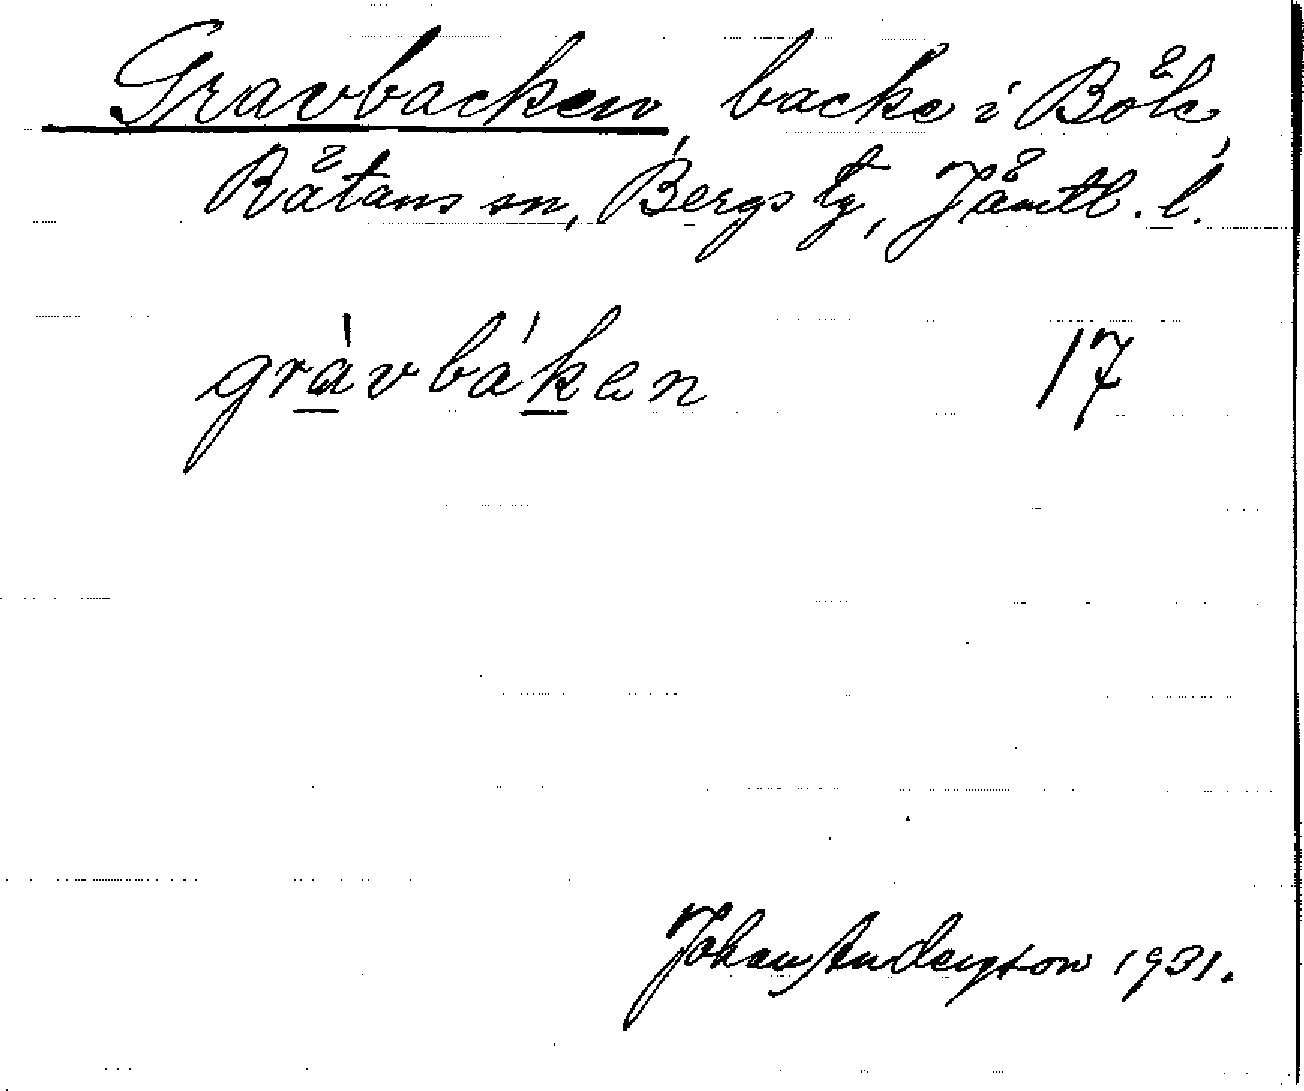 Gravbacken, backe i Böle,
Rätans sn, Bergs tg, Jämtl. l.
gràvbá'ken 17
Johan Anderzson 1931.